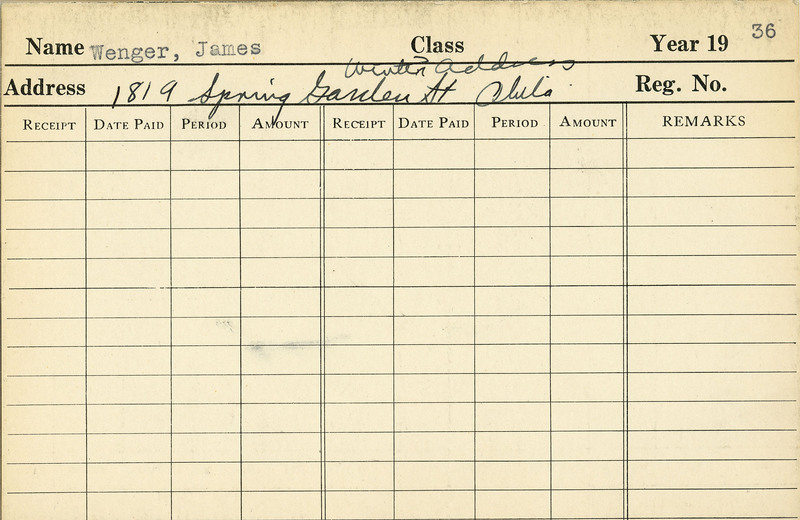 Name Wenger, James Class Year 19 36
Winter Address
Address 1819 Spring Garden St Phila. Reg. No.
RECEIPT DATE PAID PERIOD AMOUNT RECEIPT DATE PAID PERIOD AMOUNT REMARKS